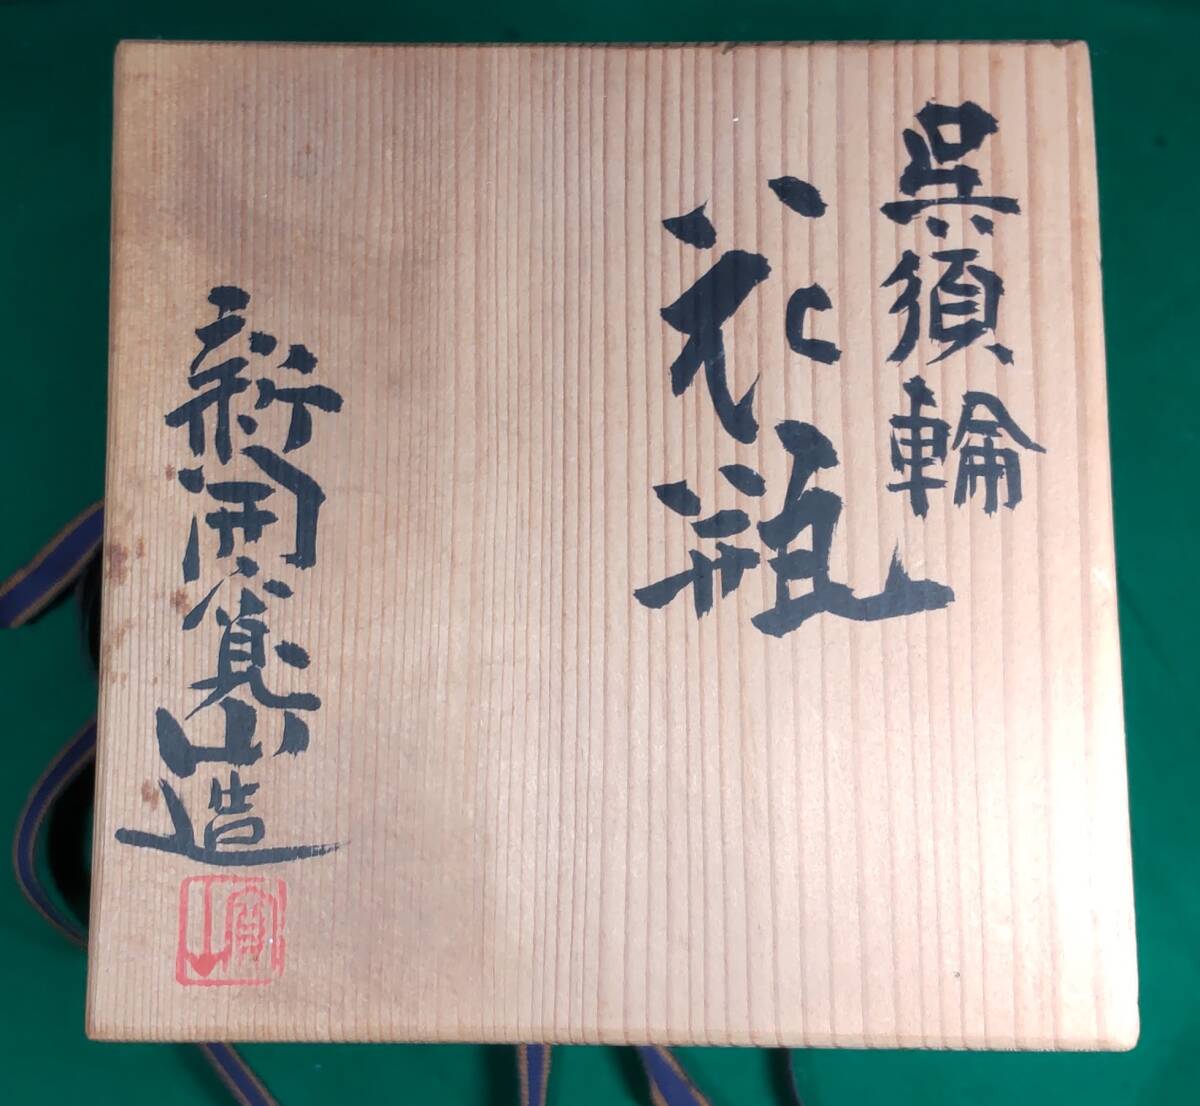 呉須輪
花瓶
新開寛山造
寛山